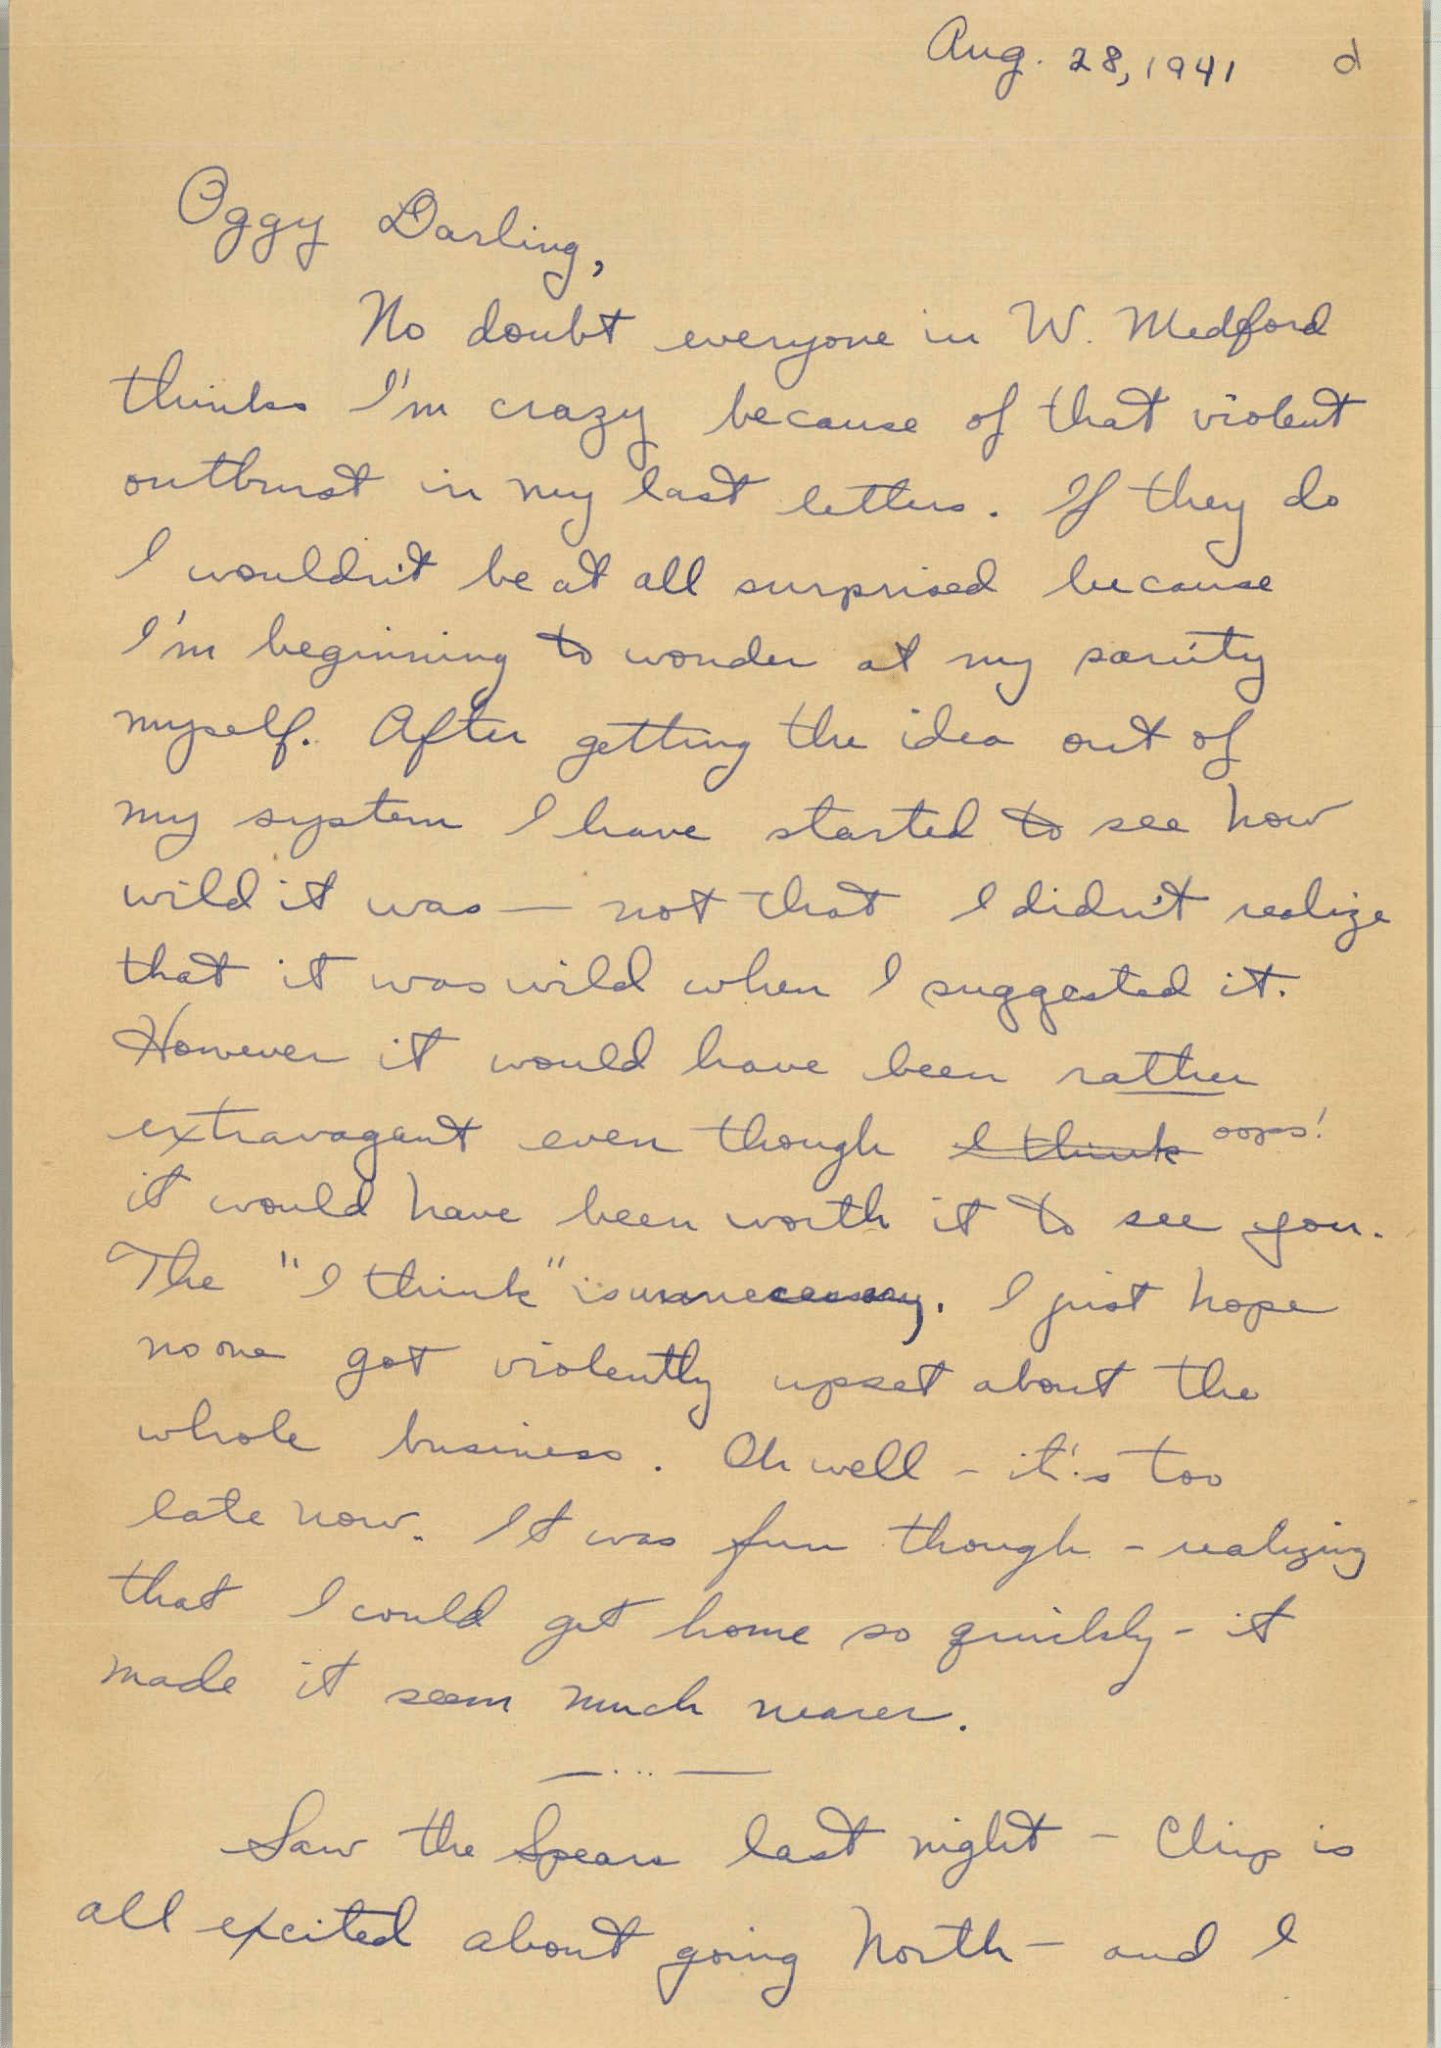 Aug. 28, 1941 d
Oggy Darling,
No doubt everyone in W. Medford
thinks I'm crazy because of that violent
outburst in my last letters. If they do
I wouldn't be at all surprised because
I'm beginning to wonder at my sanity
myself. After getting the idea out of
my system I have started to see how
wild it was — not that I didn't realize
that it was wild when I suggested it.
However it would have been rather
extravagant even though I think oops!
it would have been worth it to see you.
The "I think" is unnecessary. I just hope
no one got violently upset about the
whole business. Oh well – it's too
late now. It was fun though – realizing
that I could get home so quickly – it
made it seem much nearer.
Saw the Spears last night – Chip is
all excited about going North – and I